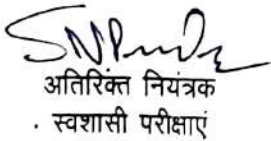 अतिरिक्त नियंत्रक
. स्वशासी परीक्षाएं